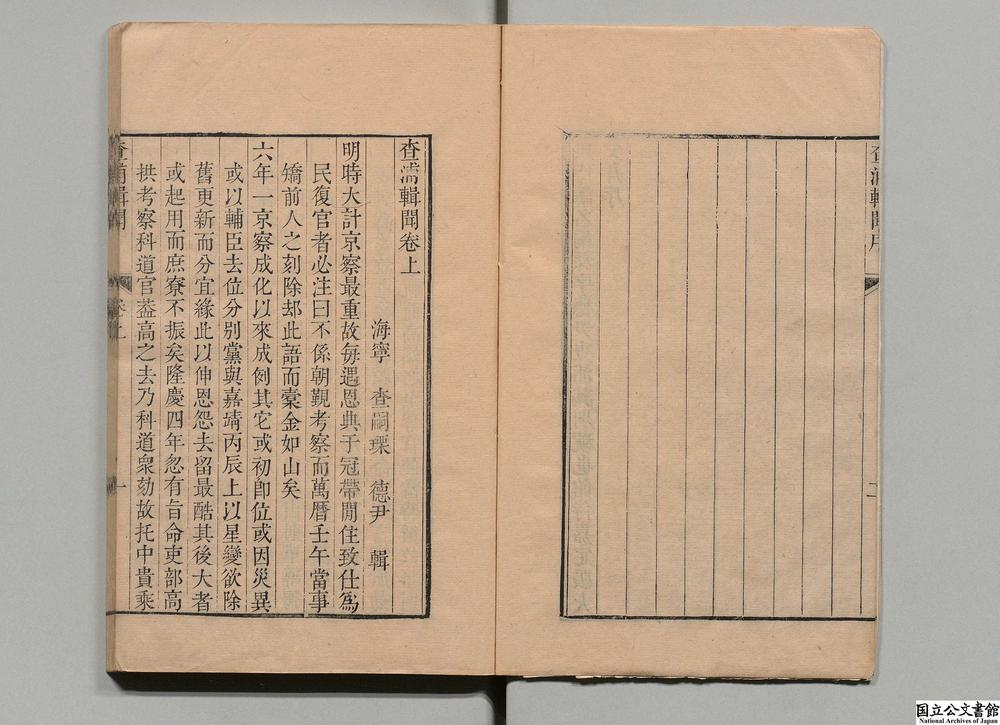 查浦輯聞序
二
查浦輯聞卷上
海寧 查嗣瑮 德尹 輯
明時大計京察最重故每遇恩典于冠帶閒住致仕爲
民復官者必注曰不係朝覲考察而萬曆壬午當事
矯前人之刻除却此語而橐金如山矣
六年一京察成化以來成例其它或初卽位或因災異
或以輔臣去位分別黨與嘉靖丙辰上以星變欲除
舊更新而分宜緣此以伸恩怨去留最酷其後大者
或起用而庶寮不振矣隆慶四年忽有旨命吏部高
拱考察科道官葢高之去乃科道衆劾故托中貴乘
查浦輯聞
卷上
一
国立公文書館
National Archives of Japan